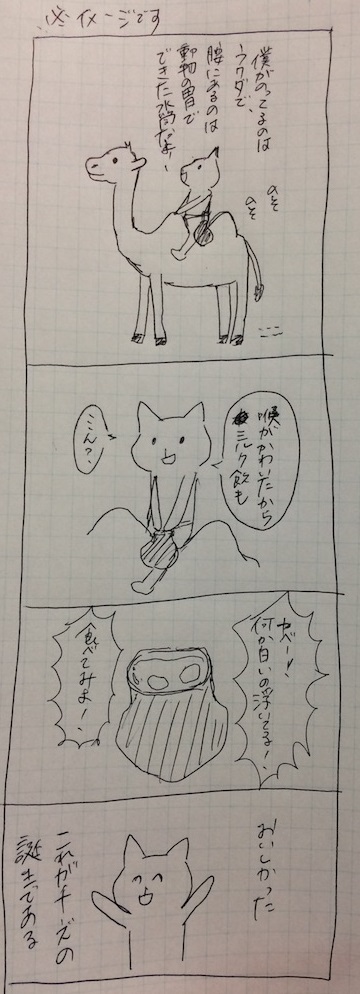 ※イメージです
僕がのってるのは
ラクダで、
腰にあるのは
動物の胃で
できた水筒だよ!
のそ
のそ
喉がかわいたから
ミルク飲も
ん?
ヤベー!
何か白いの浮いてる!
食べてみよ!
おいしかった
これがチーズの
誕生である